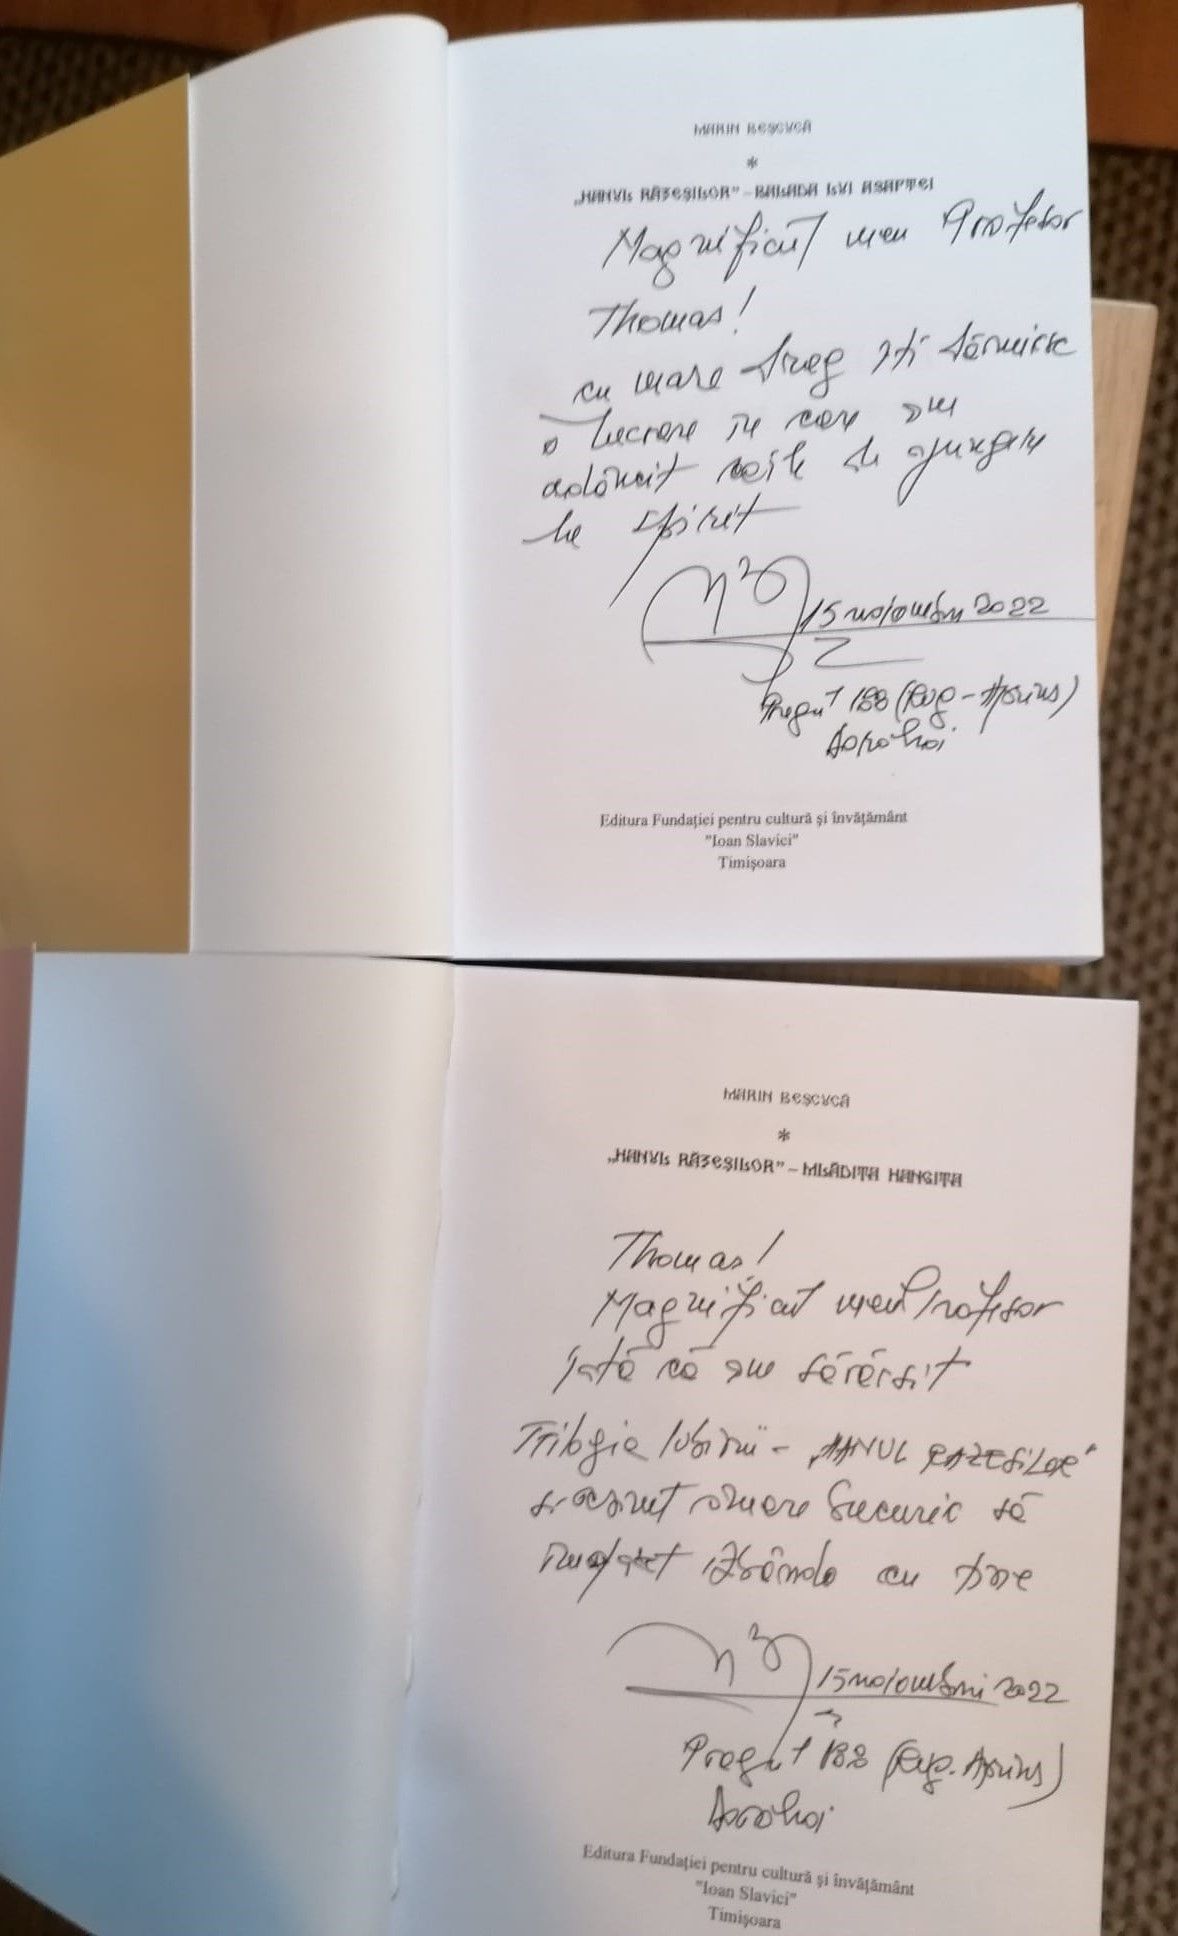 MARIN BEȘCUCĂ
*
„HANUL RĂZEȘILOR” – BALADA LUI ASAFTEI
Magnificut meu Profesor
Thomas!
cu mare drag îți dăruiesc
o lucrare în care am
adâncit căile de ajungere
la spirit
15 noiembrie 2022
Pragul 188 (Rug-Aprins)
Dorohoi
Editura Fundației pentru cultură și învățământ
"Ioan Slavici"
Timișoara
MARIN BEȘCUCĂ
*
„HANUL RĂZEȘILOR” – MLĂDIȚA HANGIȚA
Thomas!
Magnificut meu Profesor
Iată că am săvârșit
Trilogia Iubirii – „HANUL RĂZEȘILOR”
și asimt mare bucurie să
izbândo cu tine
15 noiembrie 2022
Pragul 188 (Rug. Aprins)
Dorohoi
Editura Fundației pentru cultură și învățământ
"Ioan Slavici"
Timișoara